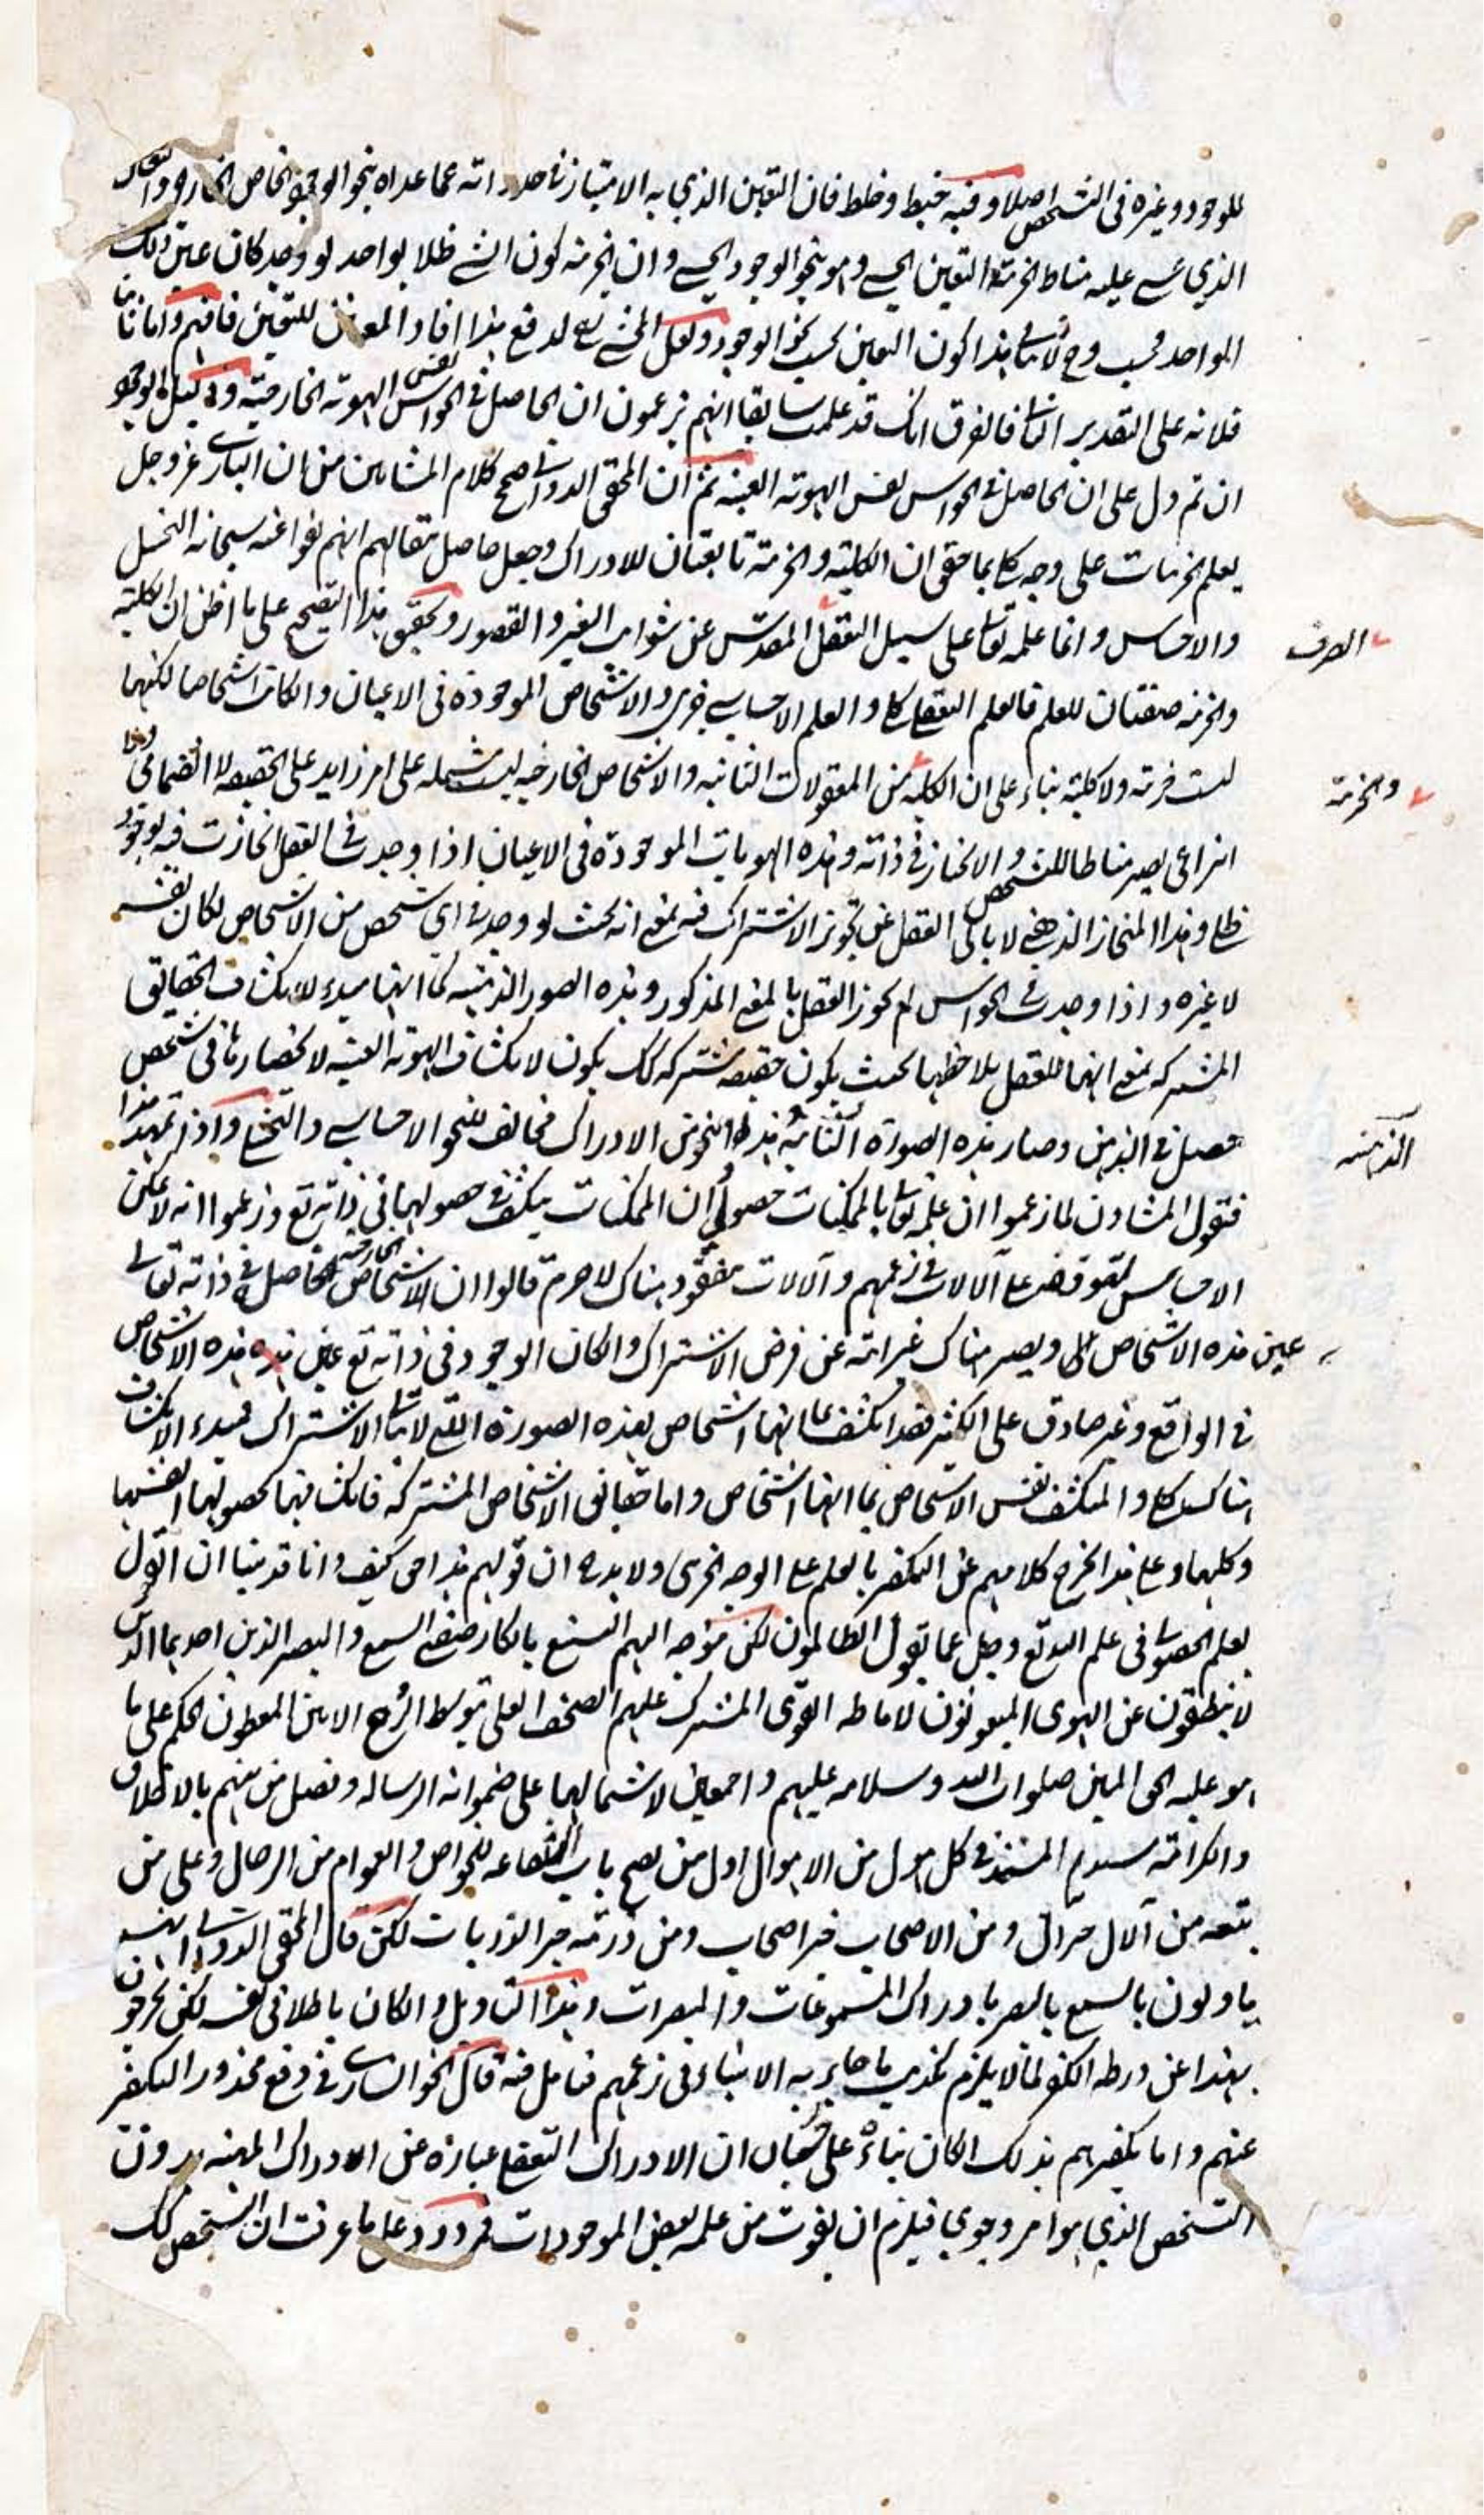 للوجود وغيره في التشخص اصلا وفيه خبط وخلط فان التعين الذي به الامتياز في حد ذاته عما عداه بنحو الوجود الخاص الخارجي والتعين
الذي عليه مناط الجزئية التعين الحسي وهو بنحو الوجود الحسي وان الجزئية كون الشئ ظلا لواحد لو وجد كان عين ذلك
الواحد فحسب وح لا ينافي هذا كون التعين بحسب نحو الوجود ولعل المحشي لدفع هذا افاد المعنيين للتعين فافهم واما ثانيا
فلانه على التقدير الثاني فالفرق انك قد علمت سابقا انهم يزعمون ان الحاصل في الحواس نفس الهوية الخارجية ودليل الوجود
ان تم دل على ان الحاصل في الحواس نفس الهوية العينية ثم ان المحقق الدواني صحح كلام المشائين من ان الباري عز وجل
يعلم الجزئيات على وجه كلي بما حقق ان الكلية والجزئية تابعتان للادراك وجعل حاصل مقالهم انهم نفوا عنه سبحانه التخيل
والاحساس وانما علمه تعالى على سبيل التعقل المقدس عن شوائب التغير والقصور وتحقيق هذا التصحيح على ما اظن ان الكلية
الصرف
والجزئية صفتان للعلم فالعلم التعقلي كلي والعلم الاحساسي جزئي والاشخاص الموجودة في الاعيان وان كانت اشخاصا لكنها
ليست جزئية ولا كلية بناء على ان الكلية من المعقولات الثانية والاشخاص الخارجية ليست مشتملة على امر زايد على الحقيقة لا انضمامي ولا
والجزئية
انتزاعي يصير مناطا للتشخص والانحياز في ذاته وهذه الهويات الموجودة في الاعيان اذا وجدت في العقل انحازت فيه بوجود
ظلي وهذا المنحاز الذهني لا يابى العقل عن تجويز الاشتراك فيه بمعنى انه بحيث لو وجد في اي شخص من الاشخاص لكان نفسه
لا غيره واذا وجدت في الحواس لم يجوز العقل بالمعنى المذكور وهذه الصور الذهنية كما انها مبدء لانكشاف الحقائق
المشتركة بمعنى انها للعقل يلاحظها بحيث يكون حقيقة مشتركة كك يكون لانكشاف الهوية العينية لانحصارها في شخص
حصل في الذهن وصار هذه الصورة الثانية هذا النحو من الادراك مخالف للنحو الاحساسي والتخيلي واذا تمهد هذا
الذهنية
فنقول المشاؤن لما زعموا ان علمه تعالى بالممكنات حصولي وان الممكنات ينكشف حصولها في ذاته تع وزعموا انه لا يمكن
الاحساس لتوقفه على الآلات في زعمهم والآلات مفقود هناك لا جرم قالوا ان الاشخاص الخارجية الحاصل في ذاته تعالى
عين هذه الاشخاص الى ويصير هناك غير ابية عن فرض الاشتراك وان كان الوجود في ذاته تع عين هذه هذه الاشخاص
في الواقع وغير صادق على الكثير فقد انكشف بما انها اشخاص بهذه الصورة التي لا ينافي الاشتراك فمبدء الانكشاف
هناك كلي والمنكشف نفس الاشخاص بما انها اشخاص واما حقائق الاشخاص المشتركة فانكشافها بحصولها انفسها
وكلها وعلى هذا يخرج كلامهم عن التكفير بالعلم على الوجه الجزئي ولا يدري ان قولهم هذا حق كيف وانا قد بينا ان القول
بعلم الحصولي في علم الله تع وجل عما يقول الظالمون لكن توجه اليهم التشنيع بانكار صفتي السمع والبصر الذين اخبر بهما الذين
لا ينطقون عن الهوى المبعوثون لاماطة القوى المشرك عليهم الصحف العلى بتوسط الروح الامين المعطون الحكم على ما
هو عليه الحق المبين صلوات الله وسلامه عليهم واجمعين لاشتمالهما على ضمو انه الرسالة وفضل من بينهم بالاخلاق
والكرامة سيدهم المستند في كل هول من الاهوال اول من يصح باب الشفاعة للخواص والعوام من الرجال وعلى من
يتبعه من آلال خير آل ومن الاصحاب خير اصحاب ومن ذريته خير الذريات لكن قال المحقق الدواني انهم
ياولون بالسمع بالبصر بادراك المسموعات والمبصرات وهذا التاويل وان كان باطلا في نفسه لكن يخرجون
بهذا عن ورطة الكفر لما لا يلزم تكذيب ما جاء به الانبياء في زعمهم فتامل فيه قال الخوانساري في دفع محذور التكفير
عنهم واما تكفيرهم بذلك ان كان بناء على حسبان ان الادراك التعقلي عبارة عن الادراك المهية بدون
التشخص الذي هو امر وجودي فيلزم ان يفوت من علمه بعض الموجودات فمردود على ما عرفت ان التشخص كك